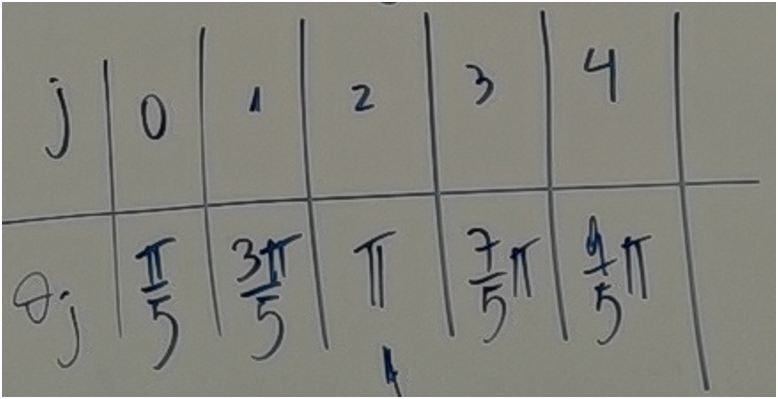 j 0 1 2 3 4
θj π/5 3π/5 π 7/5 π 9/5 π